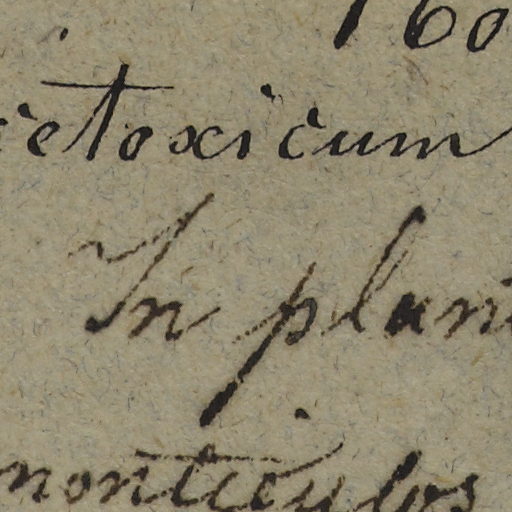 160
cetoxicum
In plan
monticulos